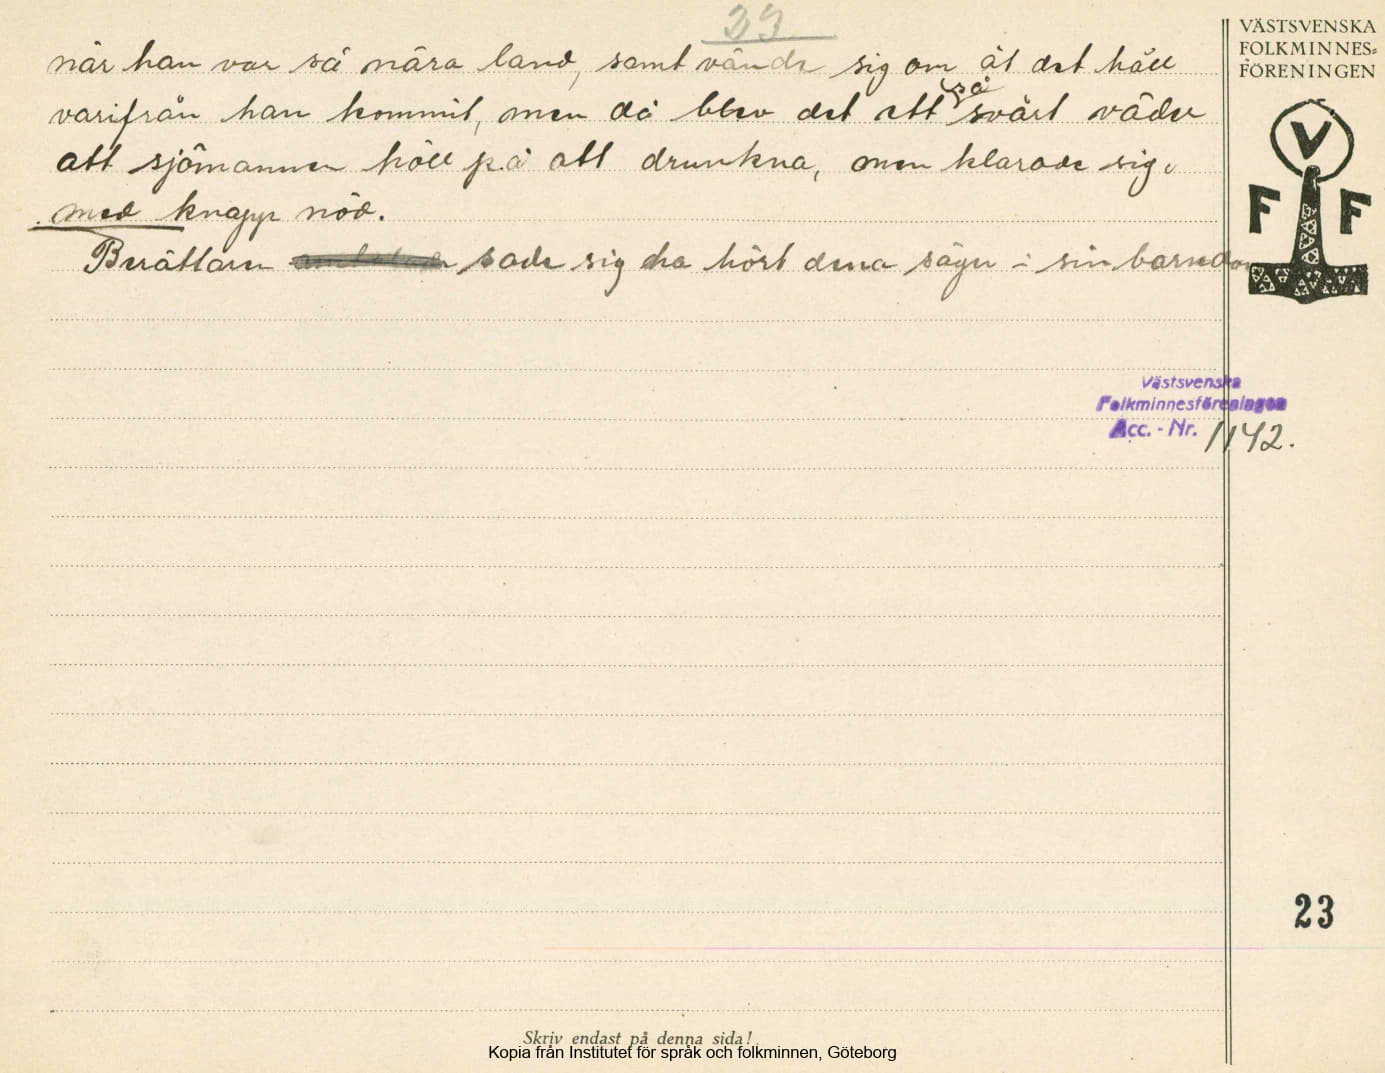 23
när han var så nära land, samt vände sig om åt det håll
varifrån han kommit, men då blev det ett så svårt väder
att sjömannen höll på att drunkna, men klarade sig.
med knapp nöd.
Berättaren sade sig ha hört dena sägen i sin barndom
VÄSTSVENSKA
FOLKMINNES=
FÖRENINGEN
V
F F
Västsvenska
Folkminnesföreningen
Acc. - Nr. 1142.
23
Skriv endast på denna sida!
Kopia från Institutet för språk och folkminnen, Göteborg